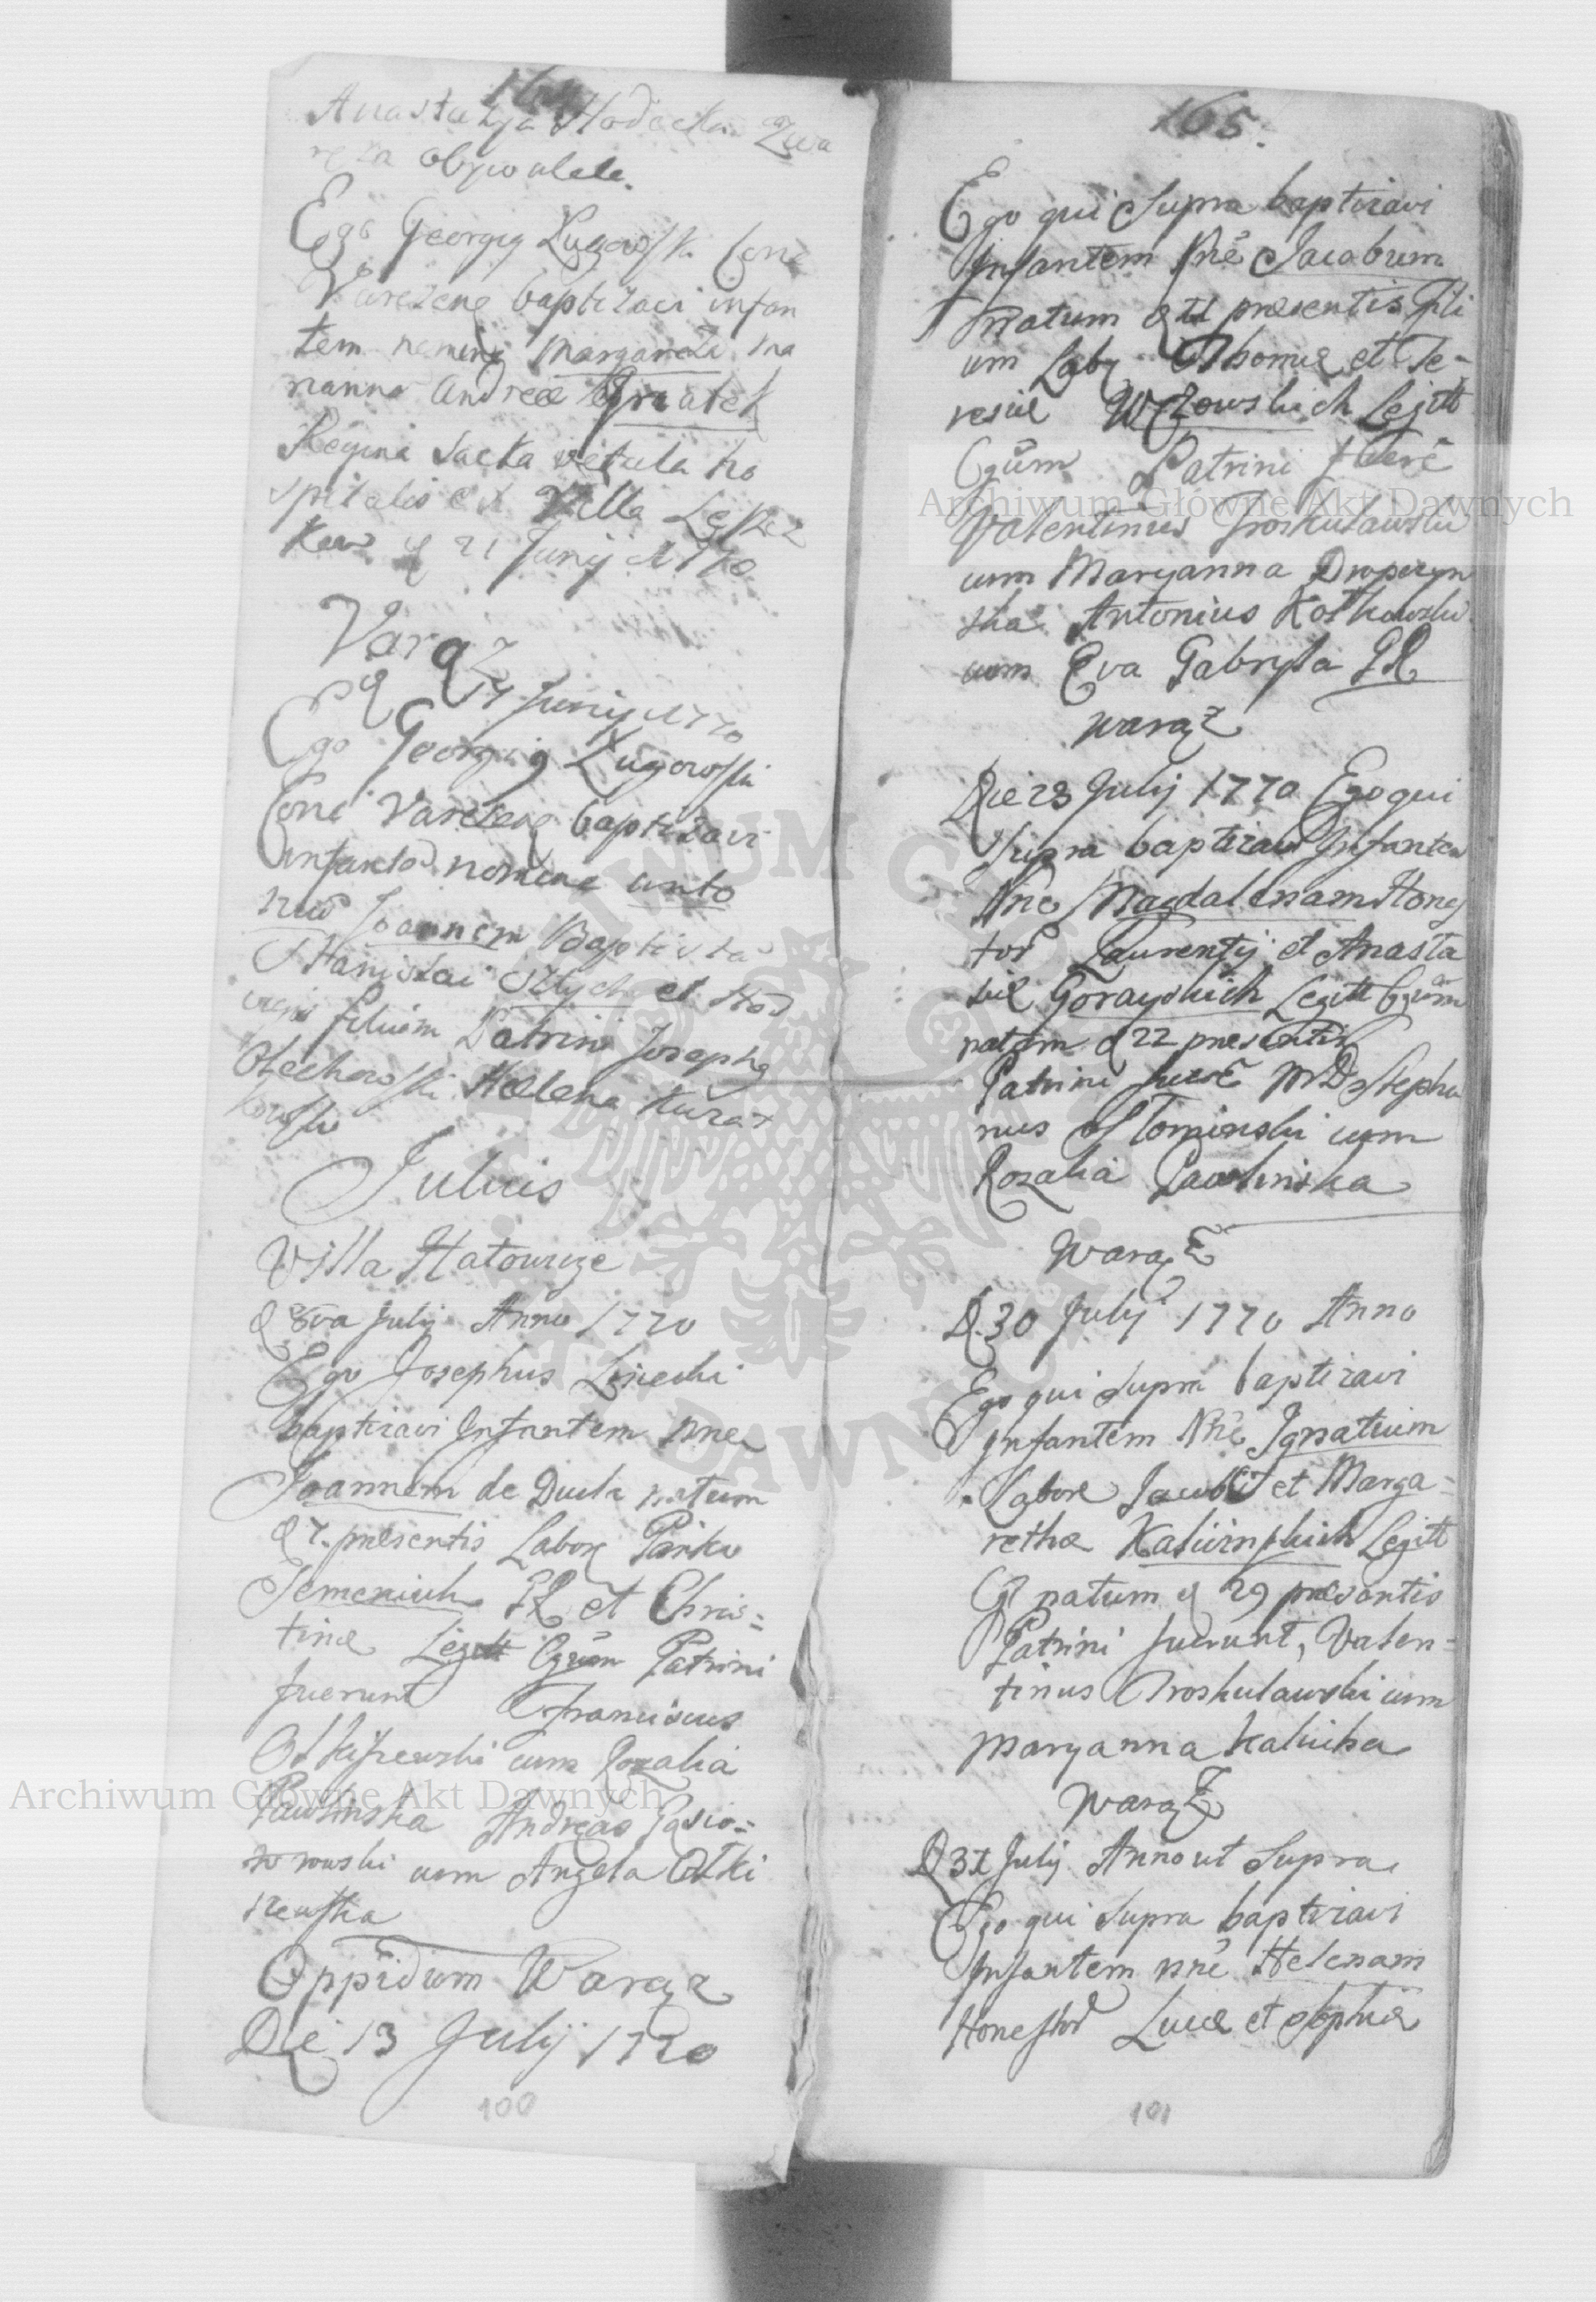 164
Anastazya Hodecka Zwa
ręza obywatele.
Ego Georgig Ługowski Cone
Varezeng baptizavi infan
tem nomine Margareta ma
rianna Andreæ Gnatek
Regina Sacka vetula ho
spitalis ex Villa
21 Junij 1770
Varąz
17 Junij 1770
Ego Georgig Ługowski
Cone Varezeng baptizavi
infantem nomine anto
niu Joannem Baptista
Stanislai et
filium Patrini Josephg
Olechowski Helena
kowski
Julius
Villa Hatowize
D 8va Julij Anno 1770
Ego Josephus Lisiecki
baptizavi Infantem Nne
Joannem de Dukla natum
d 7. præsentis Labor Pańka
Semeniuk GR et Chris=
tinæ Legitt Cgum Patrini
fuerunt Franciscus
Olkiszewski cum Rozalia
Pawlinska Andreas Gąsio=
rowski cum Angela Olki
szewska
Oppidum Warąz
Die 13 Julij 1770
100
165.
Ego qui Supra baptizavi
Infantem Nne Jacobum
natum præsentis Fili
um Lab Thomæ et Te=
resiæ Węzowskich Legitt
Cgum Patrini fuere
Valentinus Proskulawski
cum Maryanna
ska Antonius Kotkowski
cum Eva Gabryla GR
Warąz
Die 23 Julij 1770 Ego qui
Supra baptizavi Infantem
Nne Magdalenam Hones
tor Laurentij et Anasta
siæ Gorayskich Legitt Cgum
natam d 22 præsentis
Patrini fuere MD Stepha
nus Słominski cum
Rozalia Pawlinska
Warąz
D. 30 Julij 1770 Anno
Ego qui Supra baptizavi
Infantem Nne Ignatium
Labor Jacobi et Marga=
rethæ Legitt
Cg natum d 29 præsentis
Patrini fuerunt, Valen=
tinus Proskulawski cum
Maryanna Kalicka
Warąz
D 31 Julij Anno ut Supra
Ego qui Supra baptizavi
Infantem Nne Helenam
Honestor Lucæ et Sophiæ
101
Archiwum Główne Akt Dawnych
Archiwum Główne Akt Dawnych